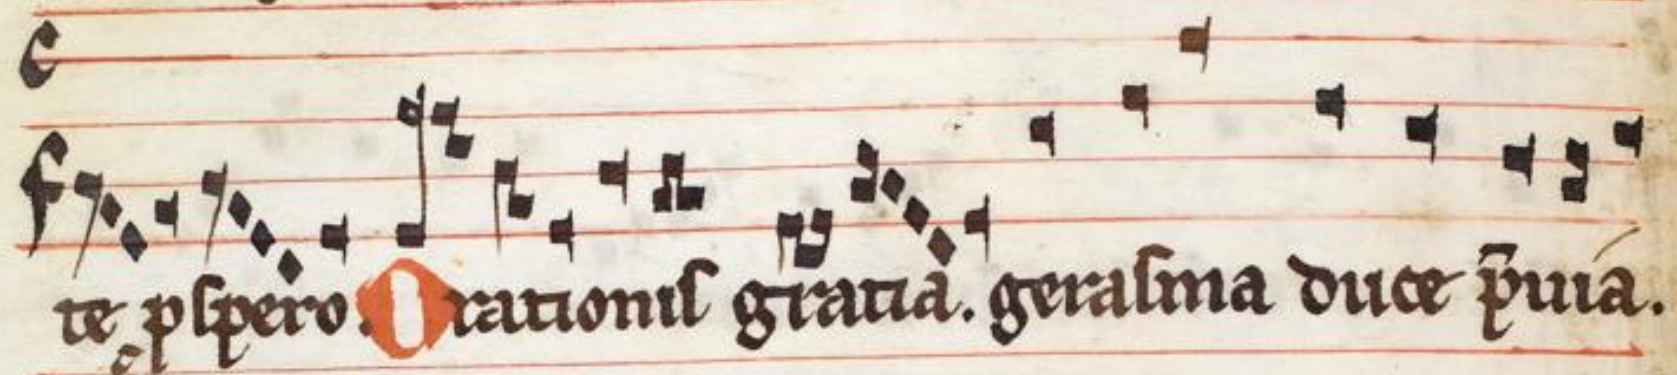 te ꝓſpero. Orationiſ gratia. geraſma duce p̄uia.